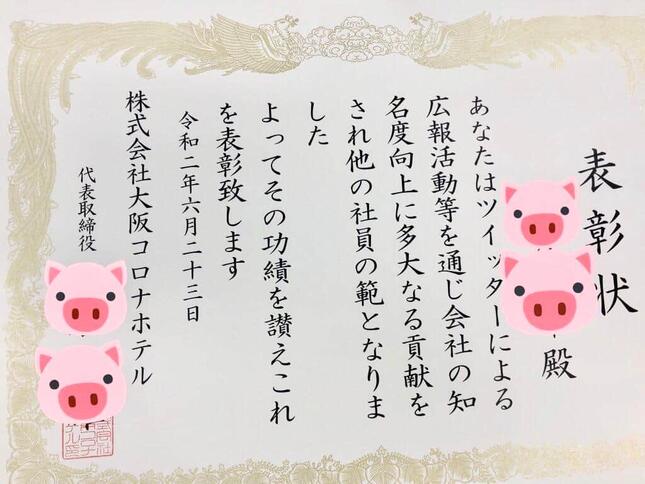 表彰状
殿
あなたはツイッターによる
広報活動等を通じ会社の知
名度向上に多大なる貢献を
され他の社員の範となりま
した
よってその功績を讃えこれ
を表彰致します
令和二年六月二十三日
株式会社大阪コロナホテル
代表取締役